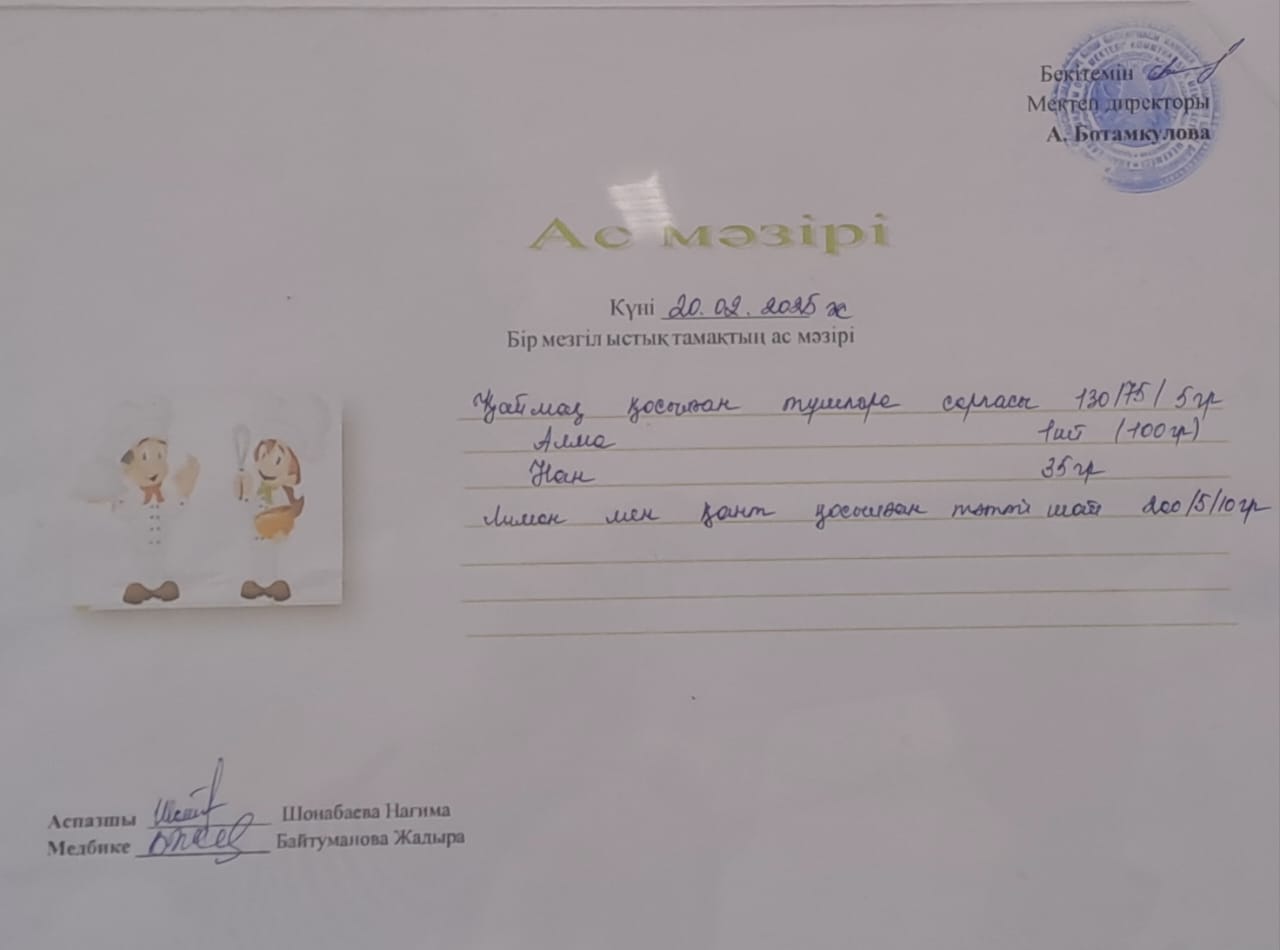 Бекітемін
Мектеп директоры
А. Ботамкулова
Ас мәзірі
Күні 20.02.2025 ж
Бір мезгіл ыстық тамақтың ас мәзірі
Қаймақ қосылған түшпара сорпасы 130/75/5гр
Алма 1шт (100гр)
Нан 35гр
Лимон мен қант қосылған тәтті шай 200/5/10гр
Аспазшы Шонабаева Нагима
Медбике Байтуманова Жадыра